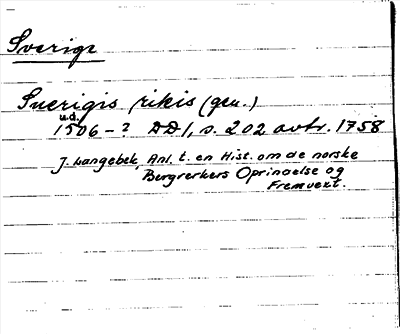 Sverige
Suerigis rikis (gen.)
u.d.
1506 - ? DD1, s. 202 avtr. 1758
J. Langebek, Anl. t. en Hist. om de norske
Bergverkers Oprinaelse og
Fremvext.